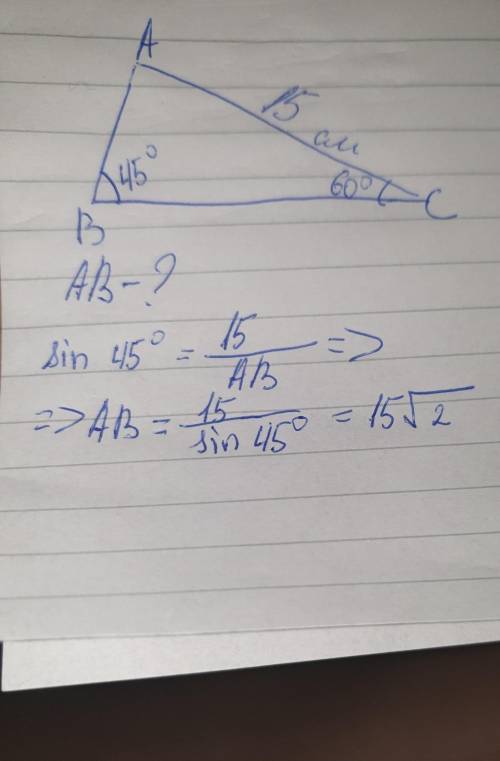 A
15 см
45° 60°
B C
AB - ?
sin 45° = 15/AB =>
=> AB = 15/sin 45° = 15√2